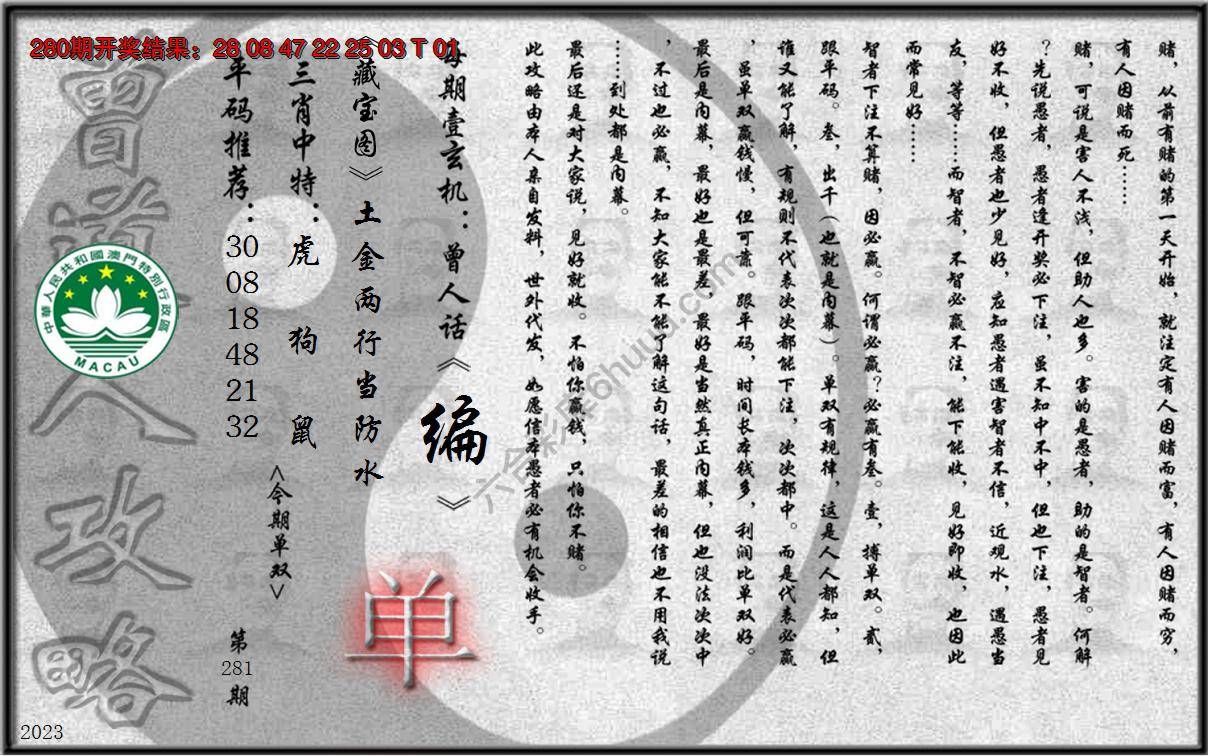 280期开奖结果：28 08 47 22 25 03 T 01
赌，从前有赌的第一天开始，就注定有人因赌而富，有人因赌而穷，
有人因赌而死……
赌，可说是害人不浅，但助人也多。害的是愚者，助的是智者。何解
？先说愚者，愚者逢开奖必下注，虽不知中不中，但也下注，愚者见
好不收，但愚者也少见好，应知愚者遇害智者不信，近观水，遇愚当
友，等等……而智者，不智必赢不注，能下能收，见好即收，也因此
而常见好……
智者下注不算赌，因必赢。何谓必赢？必赢有叁。壹，搏单双。贰，
跟平码。叁，出千（也就是内幕）。单双有规律，这是人人都知，但
谁又能了解，有规则不代表次次都能下注，次次都中。而是代表必赢
，虽单双赢钱慢，但可靠。跟平码，时间长本钱多，利润比单双好。
最后是内幕，最好也是最差，最好是当然真正内幕，但也没法次次中
，不过也必赢，不知大家能不能了解这句话，最差的相信也不用我说
……到处都是内幕。
最后还是对大家说，见好就收。不怕你赢钱，只怕你不赌。
此攻略由本人亲自发料，世外代发，如愿信本愚者必有机会收手。
每期壹玄机：曾人话《编》
《藏宝图》土金两行当防水
三肖中特：虎 狗 鼠
平码推荐：30 08 18 48 21 32
<今期单双>
单
第281期
曾道人攻略
中華人民共和國澳門特別行政區
MACAU
六合彩库6huuu.com
2023